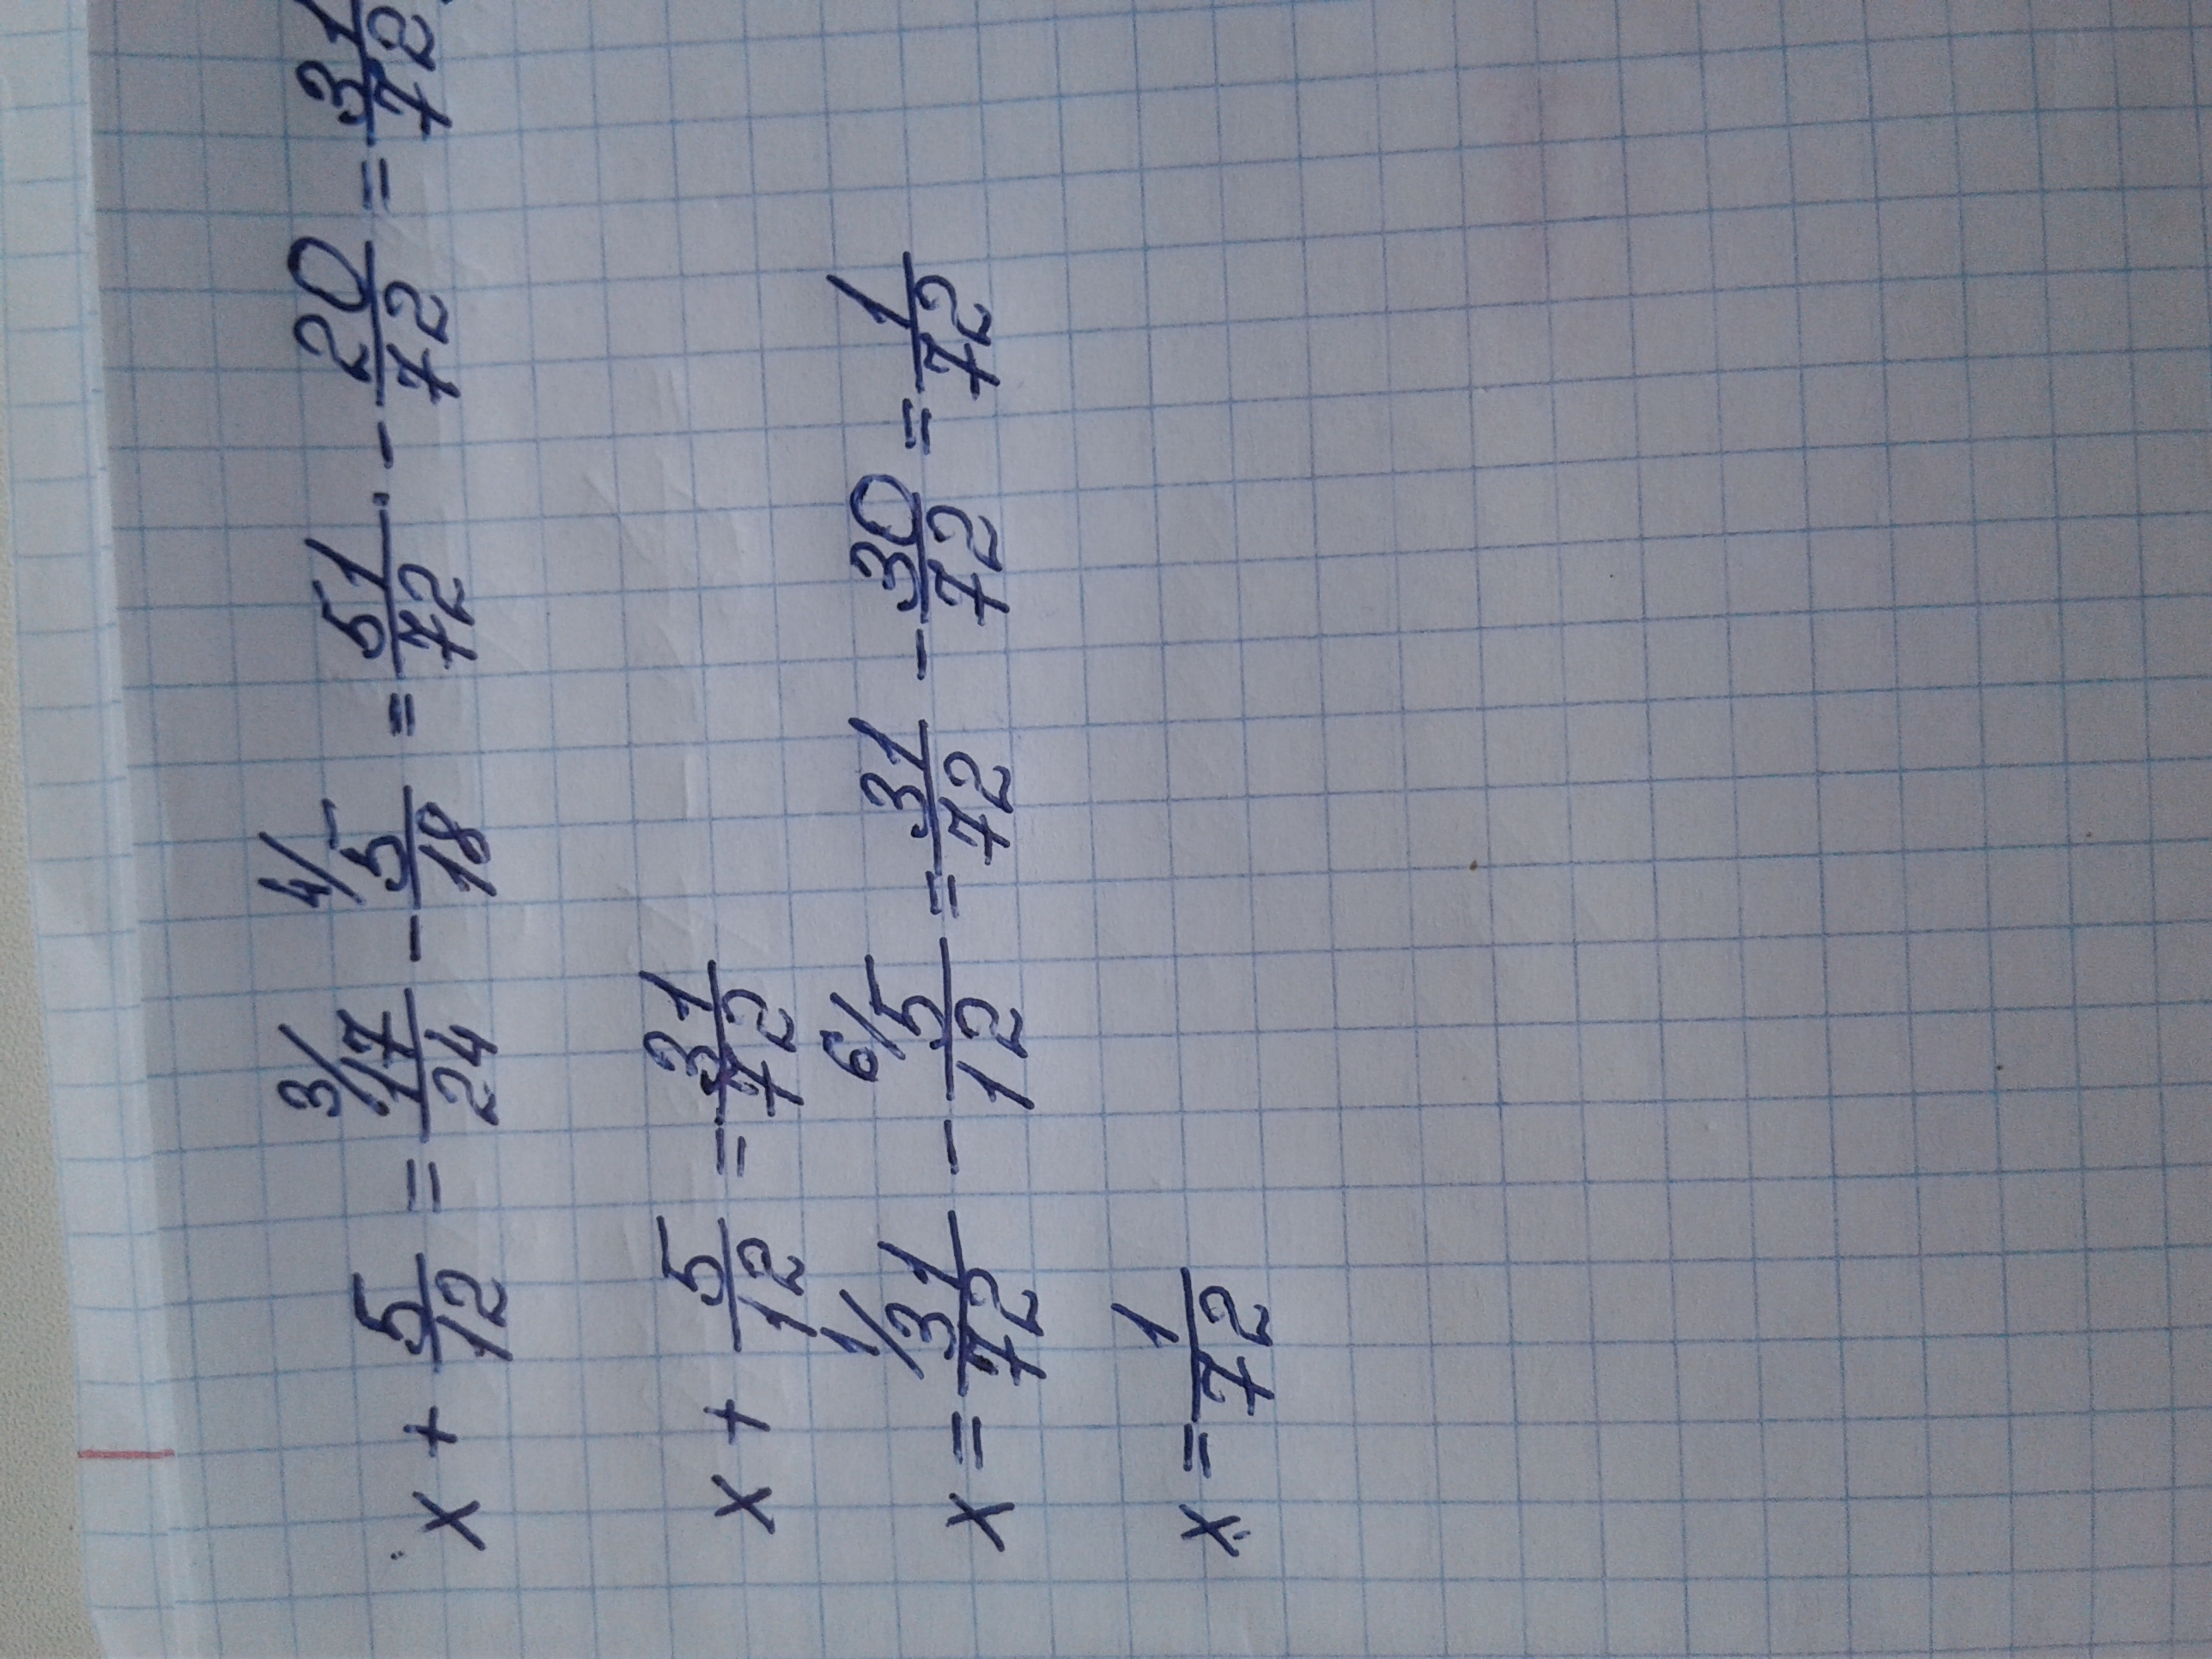 x + 5/12 = 3/ 17/24 - 4/ 5/18 = 51/72 - 20/72 = 31/72
x + 5/12 = 31/72
x = 1/ 31/72 - 6/ 5/12 = 31/72 - 30/72 = 1/72
x = 1/72